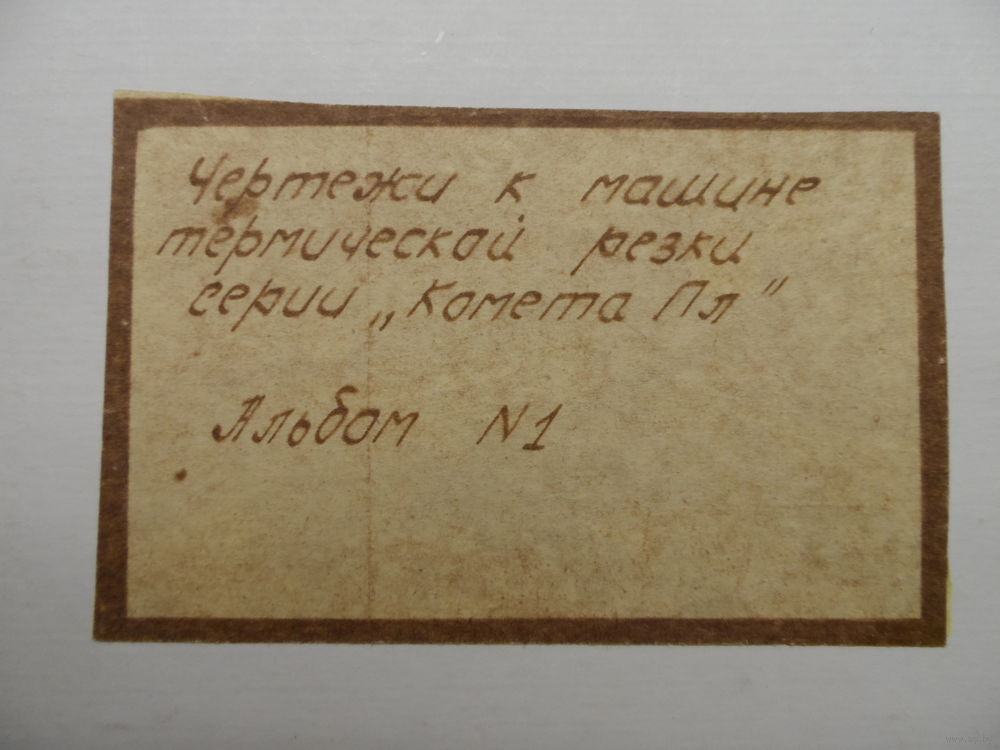 Чертежи к машине
термической резки
серии „Комета Пл"
Альбом N1